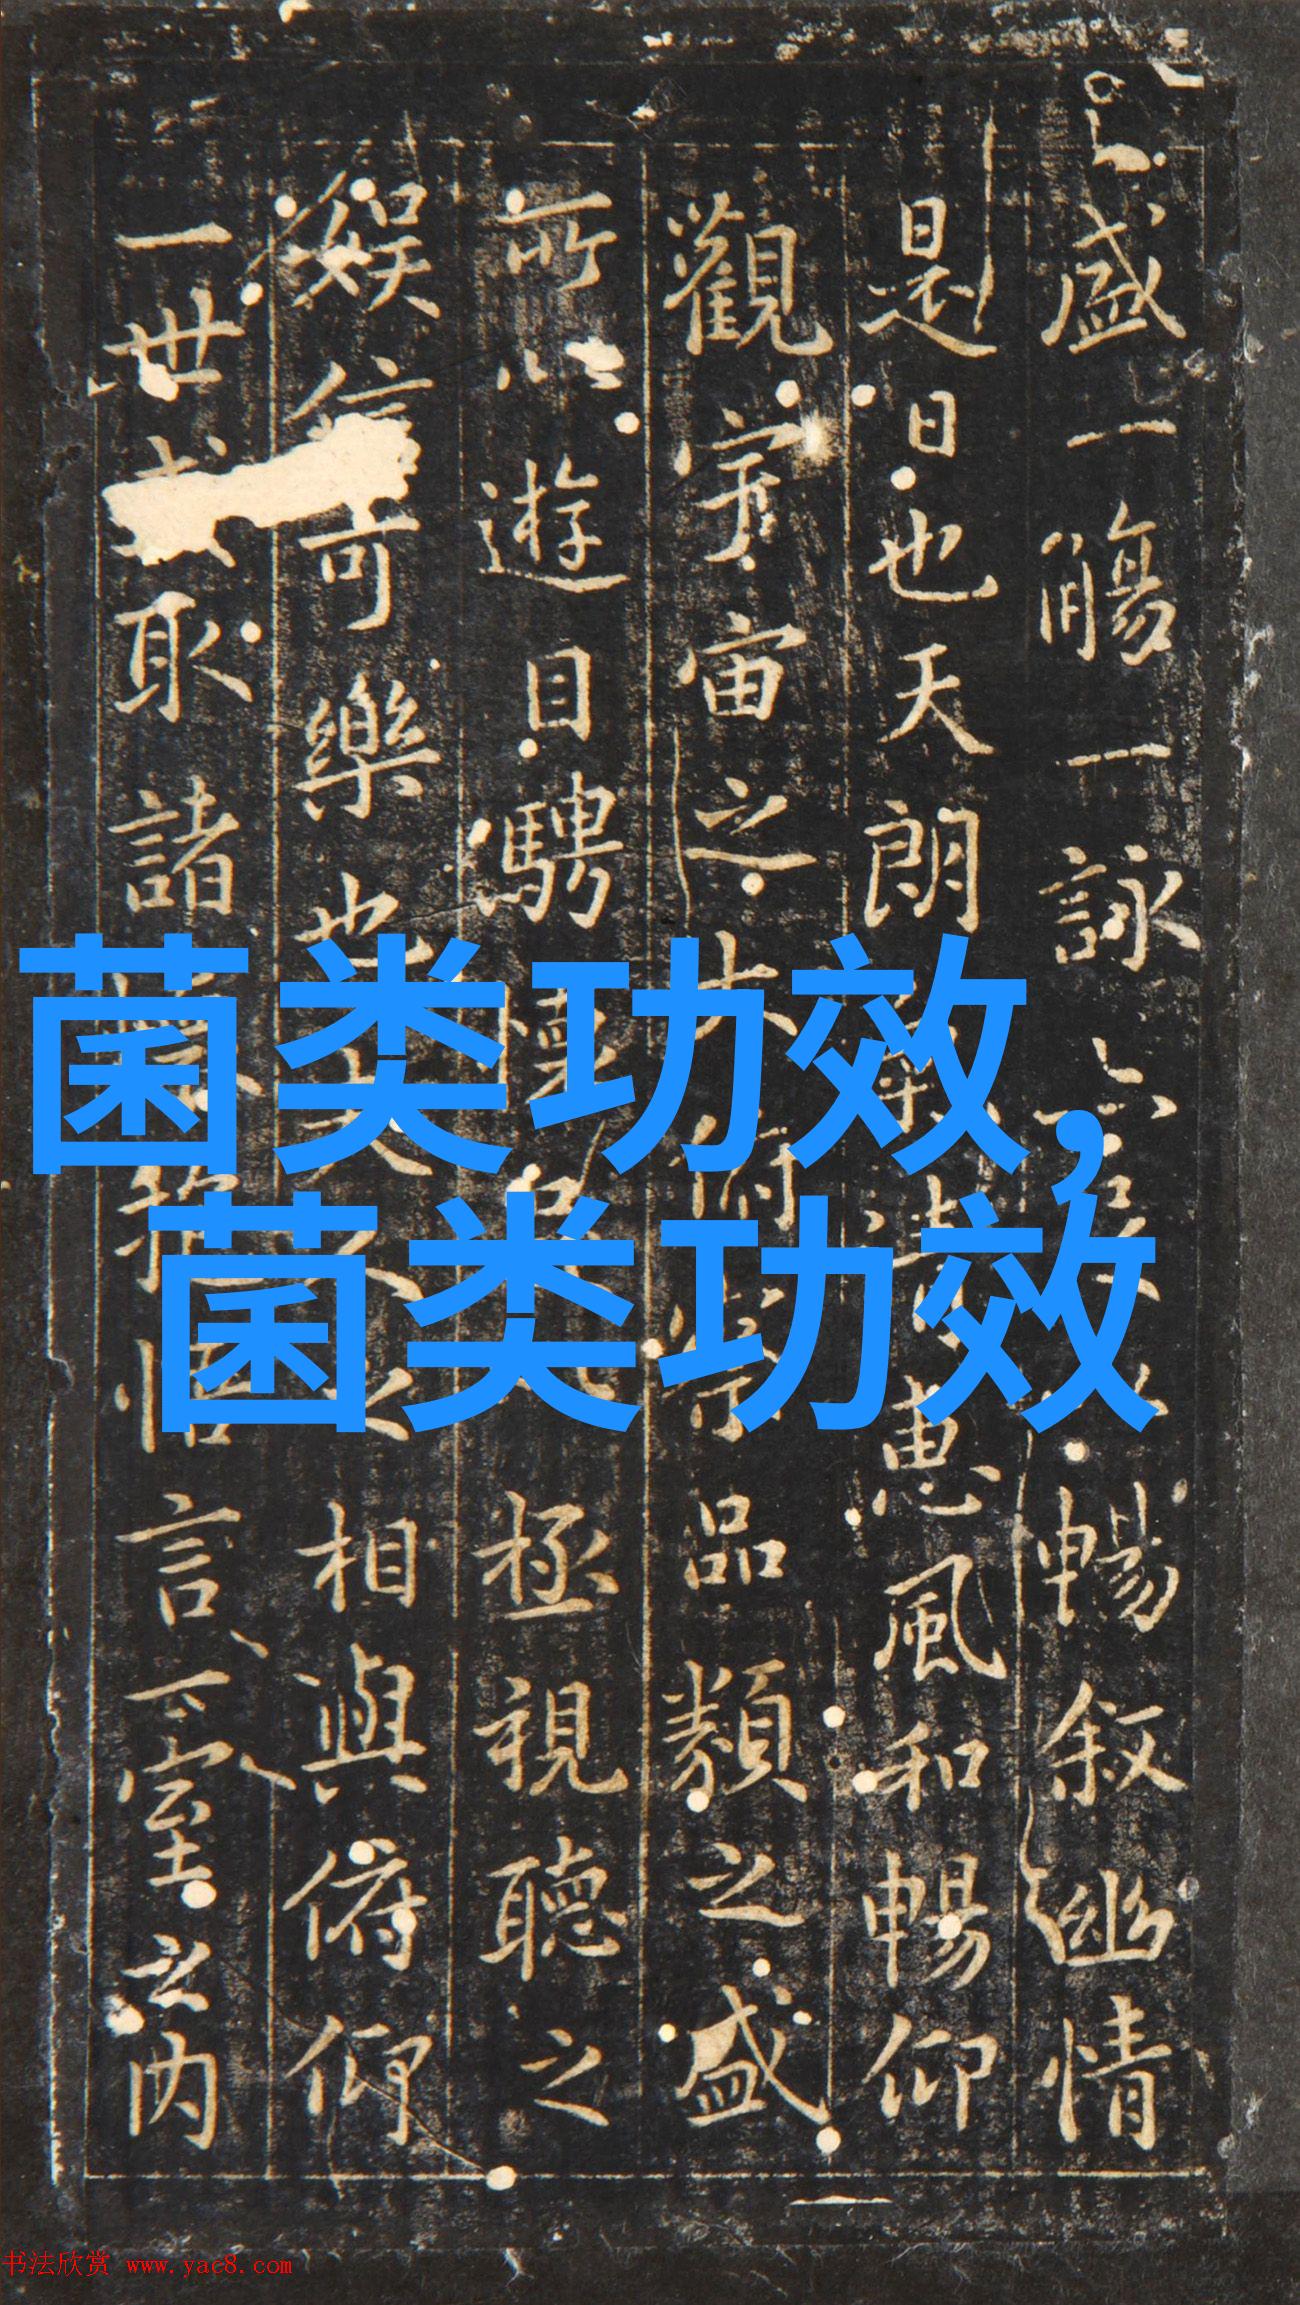 盛一觴一詠亦暢叙幽情
是日也天朗惠風和暢仰
觀宇宙之大俯察品類之盛
所以遊目騁懷極視聽之
娛信可樂也夫相與俯仰
一世取諸懷抱悟言一室之内
菌类功效,
菌类功效
书法欣赏 www.yac8.com